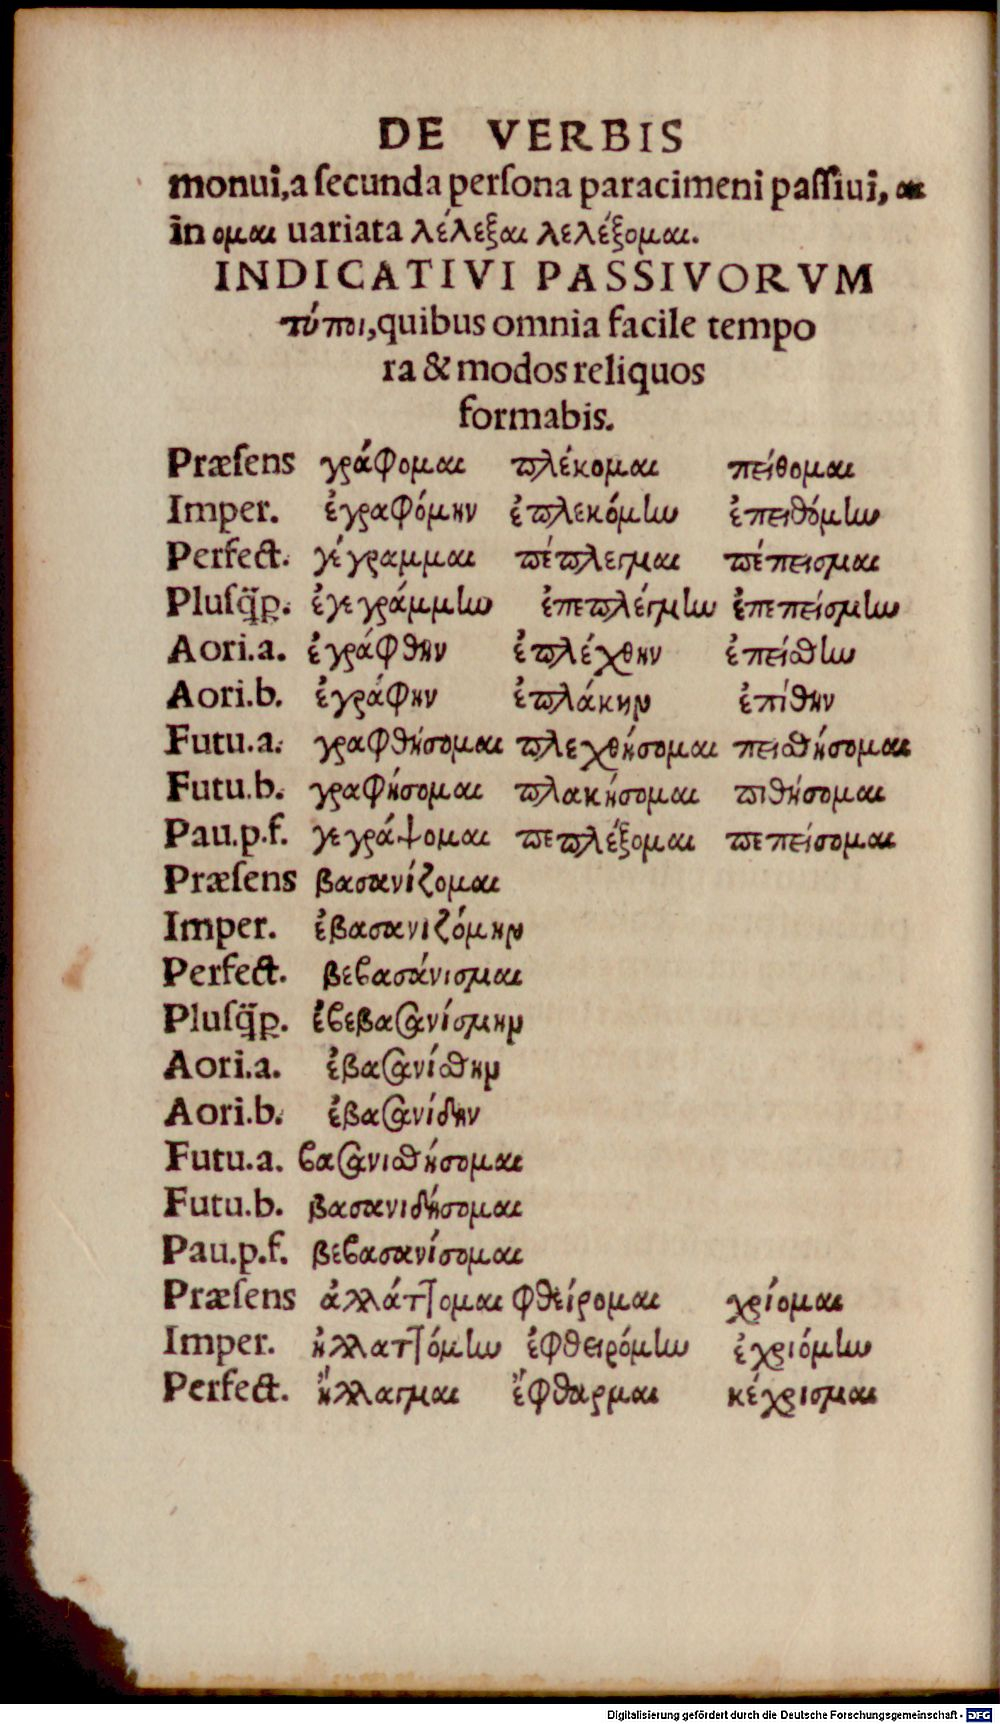 DE VERBIS
monui, a secunda persona paracimeni passiui, αι
in ομαι uariata λέλεξαι λελέξομαι.
INDICATIVI PASSIVORVM
τύποι, quibus omnia facile tempo
ra & modos reliquos
formabis.
Præsens γράφομαι πλέκομαι πείθομαι
Imper. ἐγραφόμην ἐπλεκόμην ἐπειθόμην
Perfect. γέγραμμαι πέπλεγμαι πέπεισμαι
Plusq̃p. ἐγεγράμμην ἐπεπλέγμην ἐπεπείσμην
Aori.a. ἐγράφθην ἐπλέχθην ἐπείσθην
Aori.b. ἐγράφην ἐπλάκην ἐπίθην
Futu.a. γραφθήσομαι πλεχθήσομαι πεισθήσομαι
Futu.b. γραφήσομαι πλακήσομαι πιθήσομαι
Pau.p.f. γεγράψομαι πεπλέξομαι πεπείσομαι
Præsens βασανίζομαι
Imper. ἐβασανιζόμην
Perfect. βεβασάνισμαι
Plusq̃p. ἐβεβασανίσμην
Aori.a. ἐβασανίσθην
Aori.b. ἐβασανίδην
Futu.a. βασανισθήσομαι
Futu.b. βασανιδήσομαι
Pau.p.f. βεβασανίσομαι
Præsens ἀλλάττομαι φθείρομαι χρίομαι
Imper. ἠλλαττόμην ἐφθειρόμην ἐχριόμην
Perfect. ἤλλαγμαι ἔφθαρμαι κέχρισμαι
Digitalisierung gefördert durch die Deutsche Forschungsgemeinschaft - DFG